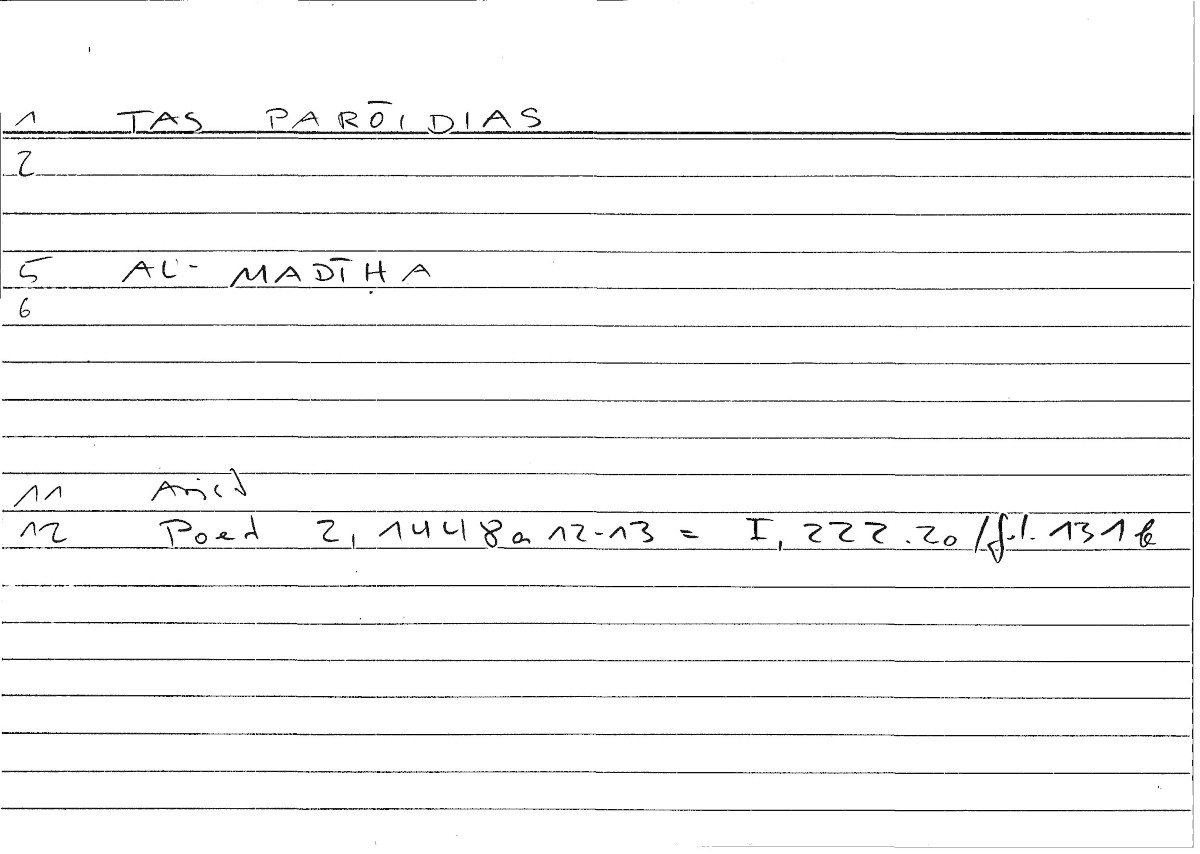 1 TAS PARŌIDIAS
2
5 AL-MADĪḤA
6
11 Arist
12 Poet 2, 1448a12-13 = I, 222.20/fol. 131b